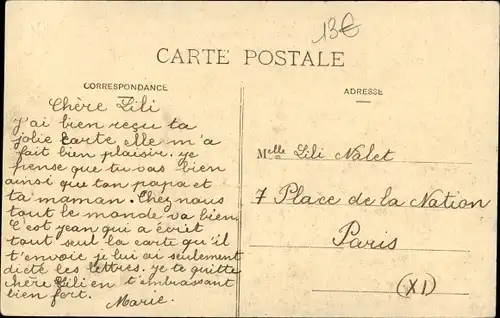 13€
CARTE POSTALE
CORRESPONDANCE
ADRESSE
Chère Lili
J'ai bien reçu ta
jolie carte elle m'a
fait bien plaisir. je
pense que tu vas bien
ainsi que ton papa et
ta maman. Chez nous
tout le monde va bien
C'est jean qui a écrit
tout seul la carte qu'il
t'envoie je lui ai seulement
dicté les lettres. je te quitte
chère Lili en t'embrassant
bien fort.
Marie.
Melle Lili Nalet
7 Place de la Nation
Paris
(XI)